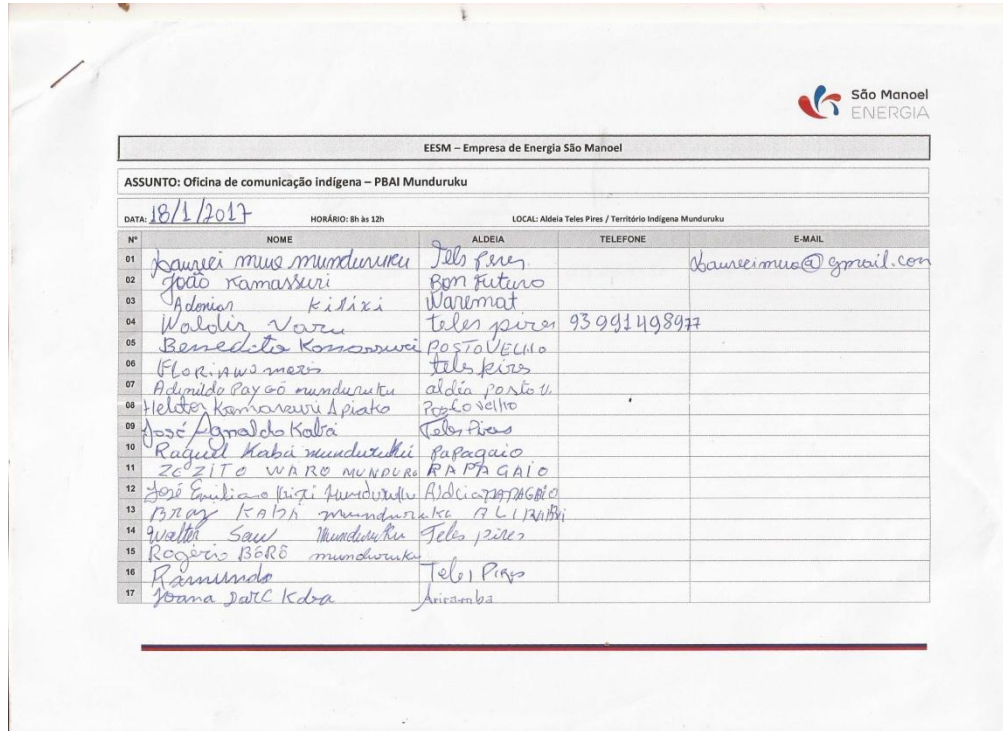 São Manoel
ENERGIA
EESM – Empresa de Energia São Manoel
ASSUNTO: Oficina de comunicação indígena – PBAI Munduruku
DATA: 18/1/2017 HORÁRIO: 8h às 12h LOCAL: Aldeia Teles Pires / Território Indígena Munduruku
Nº NOME ALDEIA TELEFONE E-MAIL
01 munduruku Tels Peres @gmail.con
02 João Kamassuri Bon Futuro
03 Adonias Kilixi Waremat
04 Waldir Varu teles pires 93 991498977
05 Benedito POSTO VELHO
06 teles pires
07 Paygó munduruku aldéia posto V.
08 Helder Kamassuri Apiaka Posto velho
09 José Agnaldo Kabá Teles Pires
10 Raquel Kabá munduruku papagaio
11 ZEZITO WARO MUNDURU PAPAGAIO
12 José Emiliano Kirixi Munduruku Aldeia PAPAGAIO
13 BRAZ KABÁ munduruku
14 Walter Saw Munduruku Teles pires
15 Rogério BÔRÔ munduruku
16 Raimundo Teles Pires
17 Joana Darc Kaba Ariramba